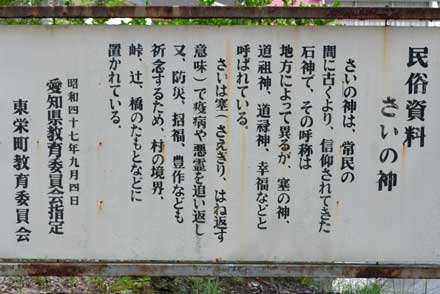 民俗資料
さいの神
さいの神は、常民の
間に古くより、信仰されてきた
石神で、その呼称は
地方によって異るが、塞の神、
道祖神、道祿神、幸福などと
呼ばれている。
さいは塞(さえぎり、はね返す
意味)で疫病や悪霊を追い返し
又、防災、招福、豊作なども
祈念するため、村の境界、
峠、辻、橋のたもとなどに
置かれている。
昭和四十七年九月四日
愛知県教育委員会指定
東栄町教育委員会